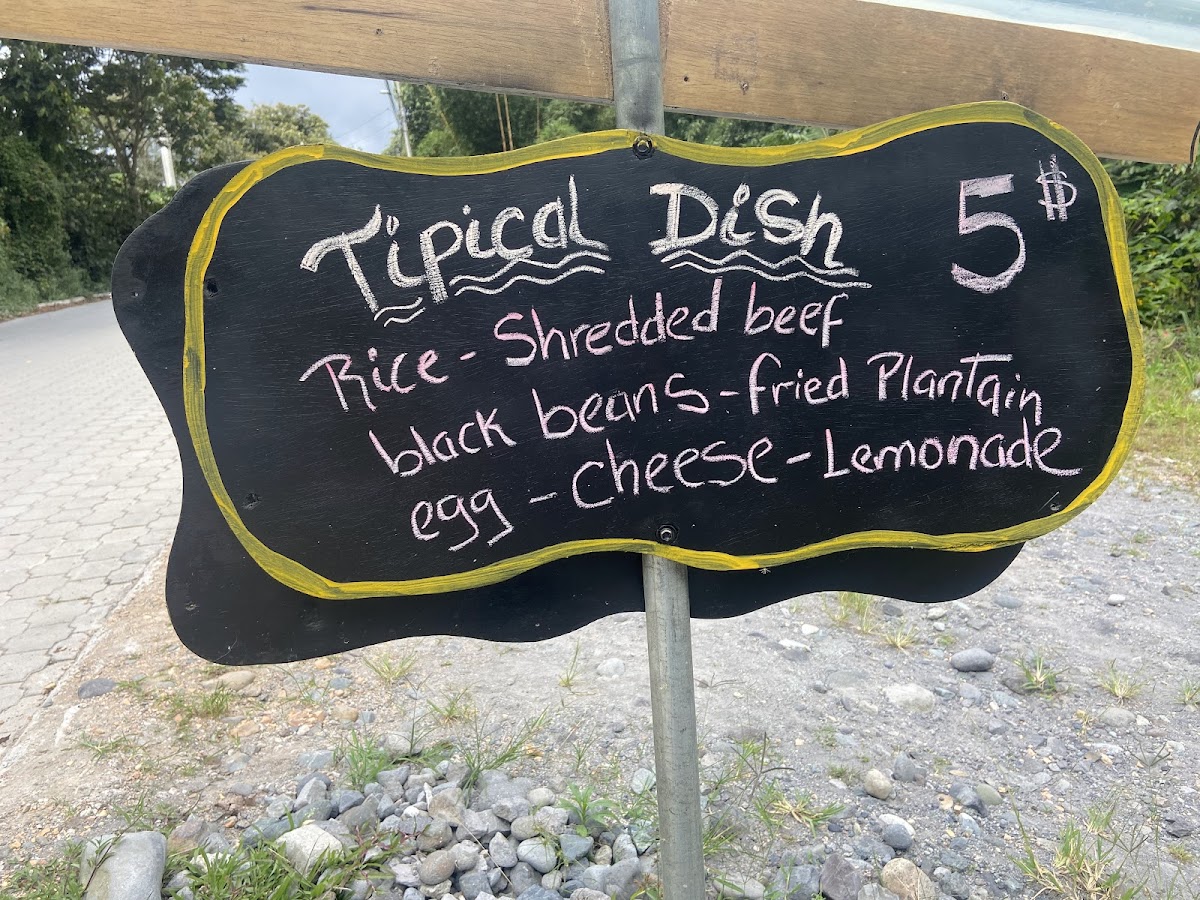 Tipical Dish 5$
Rice - Shredded beef
black beans - fried Plantain
egg - cheese - Lemonade